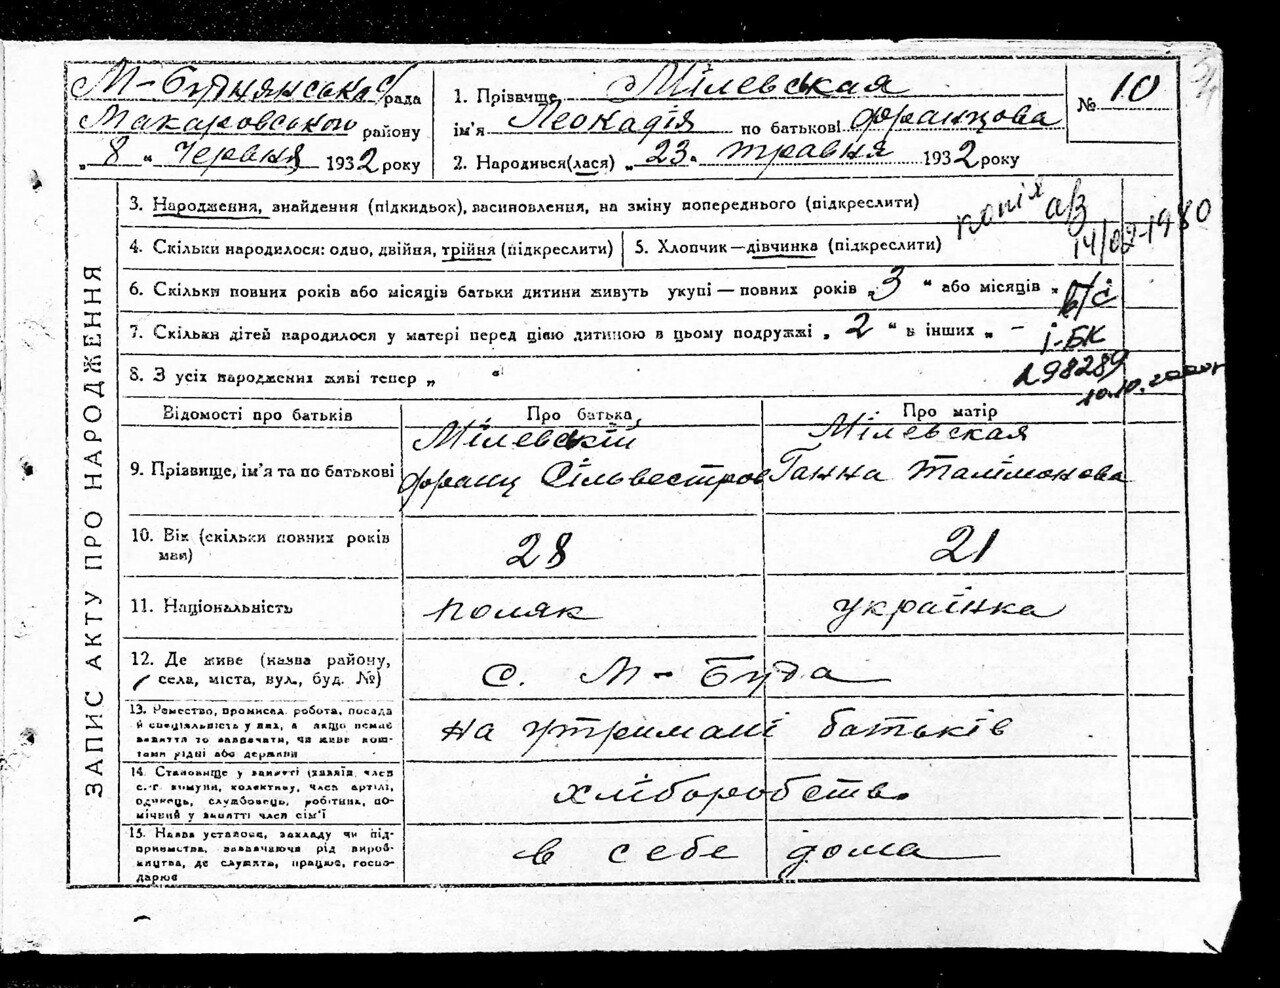 М-Буднянська с/рада
Макаровського району
„ 8 “ Червня 1932 року
1. Прізвище Мілевская
ім'я Леокадія по батькові Францова
2. Народився(лася) „ 23 “ травня 1932 року
№ 10
ЗАПИС АКТУ ПРО НАРОДЖЕННЯ
3. Народження, знайдення (підкидьок), васиновлення, на зміну попереднього (підкреслити)
копія
14/02-1980
4. Скільки народилося: одно, двійня, трійня (підкреслити)
5. Хлопчик—дівчинка (підкреслити)
6. Скільки повних років або місяців батьки дитини живуть укупі — повних років „ 3 “ або місяців „
7. Скільки дітей народилося у матері перед цією дитиною в цьому подружжі „ 2 “ в інших „ –
І-БК
298289
8. З усіх народжених живі тепер „ “
Відомості про батьків
Про батька
Про матір
9. Прізвище, ім'я та по батькові
Мілевскій
Франц Сільвестров
Мілевская
Ганна Талімонова
10. Вік (скільки повних років
має)
28
21
11. Національність
поляк
українка
12. Де живе (назва району,
села, міста, вул., буд. №)
с. М-Буда
13. Ремество, промисел, робота, посада
й спеціяльність у них, а якщо немає
заняття то зазначати, чи живе кош-
тами рідні або держави
на утримані батьків
14. Становище у занятті (хазяїн, член
с.-г. комуни, колективу, член артілі,
одинець, службовець, робітник, по-
мічний у занятті член сім'ї
хліборобств.
15. Назва установи, закладу чи під-
приємства, зазначаючи рід вироб-
ництва, де служить, працює, госпо-
дарює
в себе дома